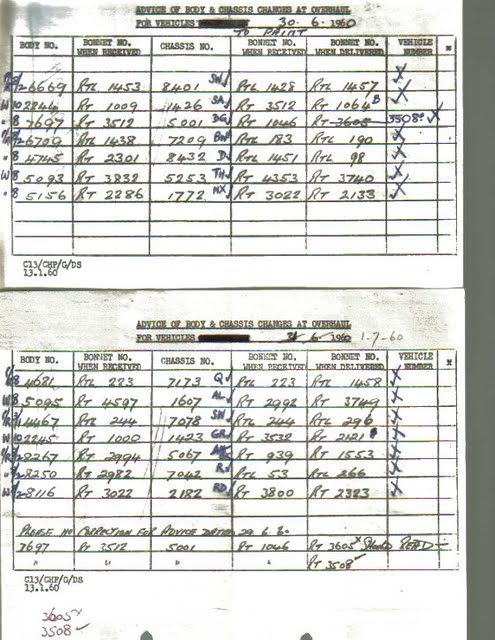 ADVICE OF BODY & CHASSIS CHANGES AT OVERHAUL
FOR VEHICLES 30. 6. 1960
TO PAINT
BODY NO. BONNET NO. WHEN RECEIVED CHASSIS NO. BONNET NO. WHEN RECEIVED BONNET NO. WHEN DELIVERED VEHICLE NUMBER *
6669 RTL 1453 8401 SW RTL 1428 RTL 1457
W 10 2244 RT 1009 1426 SA RT 3512 RT 1064 B
" 8 7697 RT 3512 5001 DG RT 1046 RT 3605 3508
6709 RTL 1438 7209 BW RTL 183 RTL 190
" 8 4745 RT 2301 8432 D RTL 1451 RTL 98
W 8 5093 RT 3832 5253 TH RT 4353 RT 3740
" 8 5156 RT 2286 1772 NX RT 3022 RT 2133
C13/CHP/G/DS
13.1.60
ADVICE OF BODY & CHASSIS CHANGES AT OVERHAUL
FOR VEHICLES 6. 1960 1-7-60
BODY NO. BONNET NO. WHEN RECEIVED CHASSIS NO. BONNET NO. WHEN RECEIVED BONNET NO. WHEN DELIVERED VEHICLE NUMBER *
8 4681 RTL 223 7173 Q RTL 223 RTL 1458
W 8 5095 RT 4597 1607 AL RT 2992 RT 3749
4467 RTL 244 7078 SW RTL 244 RTL 296
W 10 2245 RT 1000 1423 GR RT 3532 RT 2121 B
8267 RT 2994 5067 RT 939 RT 1553
8250 RT 2982 7042 R RTL 53 RTL 266
W 8116 RT 3022 2182 RD RT 3800 RT 2323
PLEASE NO CORRECTION FOR ADVICE DATED 29. 6. 60
7697 RT 3512 5001 RT 1046 RT 3605 x SHOULD READ —
" " " " RT 3508
C13/CHP/G/DS
13.1.60
3605 x
3508